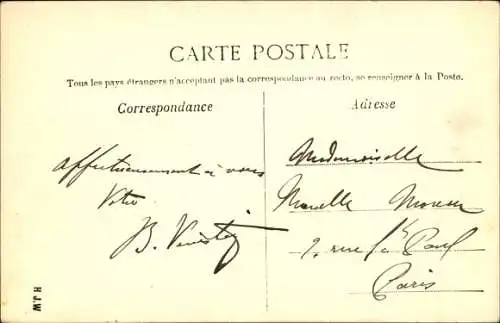 CARTE POSTALE
Tous les pays étrangers n'acceptant pas la correspondance au recto, se renseigner à la Poste.
Correspondance
Adresse
affectueusement à vous
Votre
B.
Mademoiselle
Marcelle Moreau
rue St Paul
Paris
H.J.W